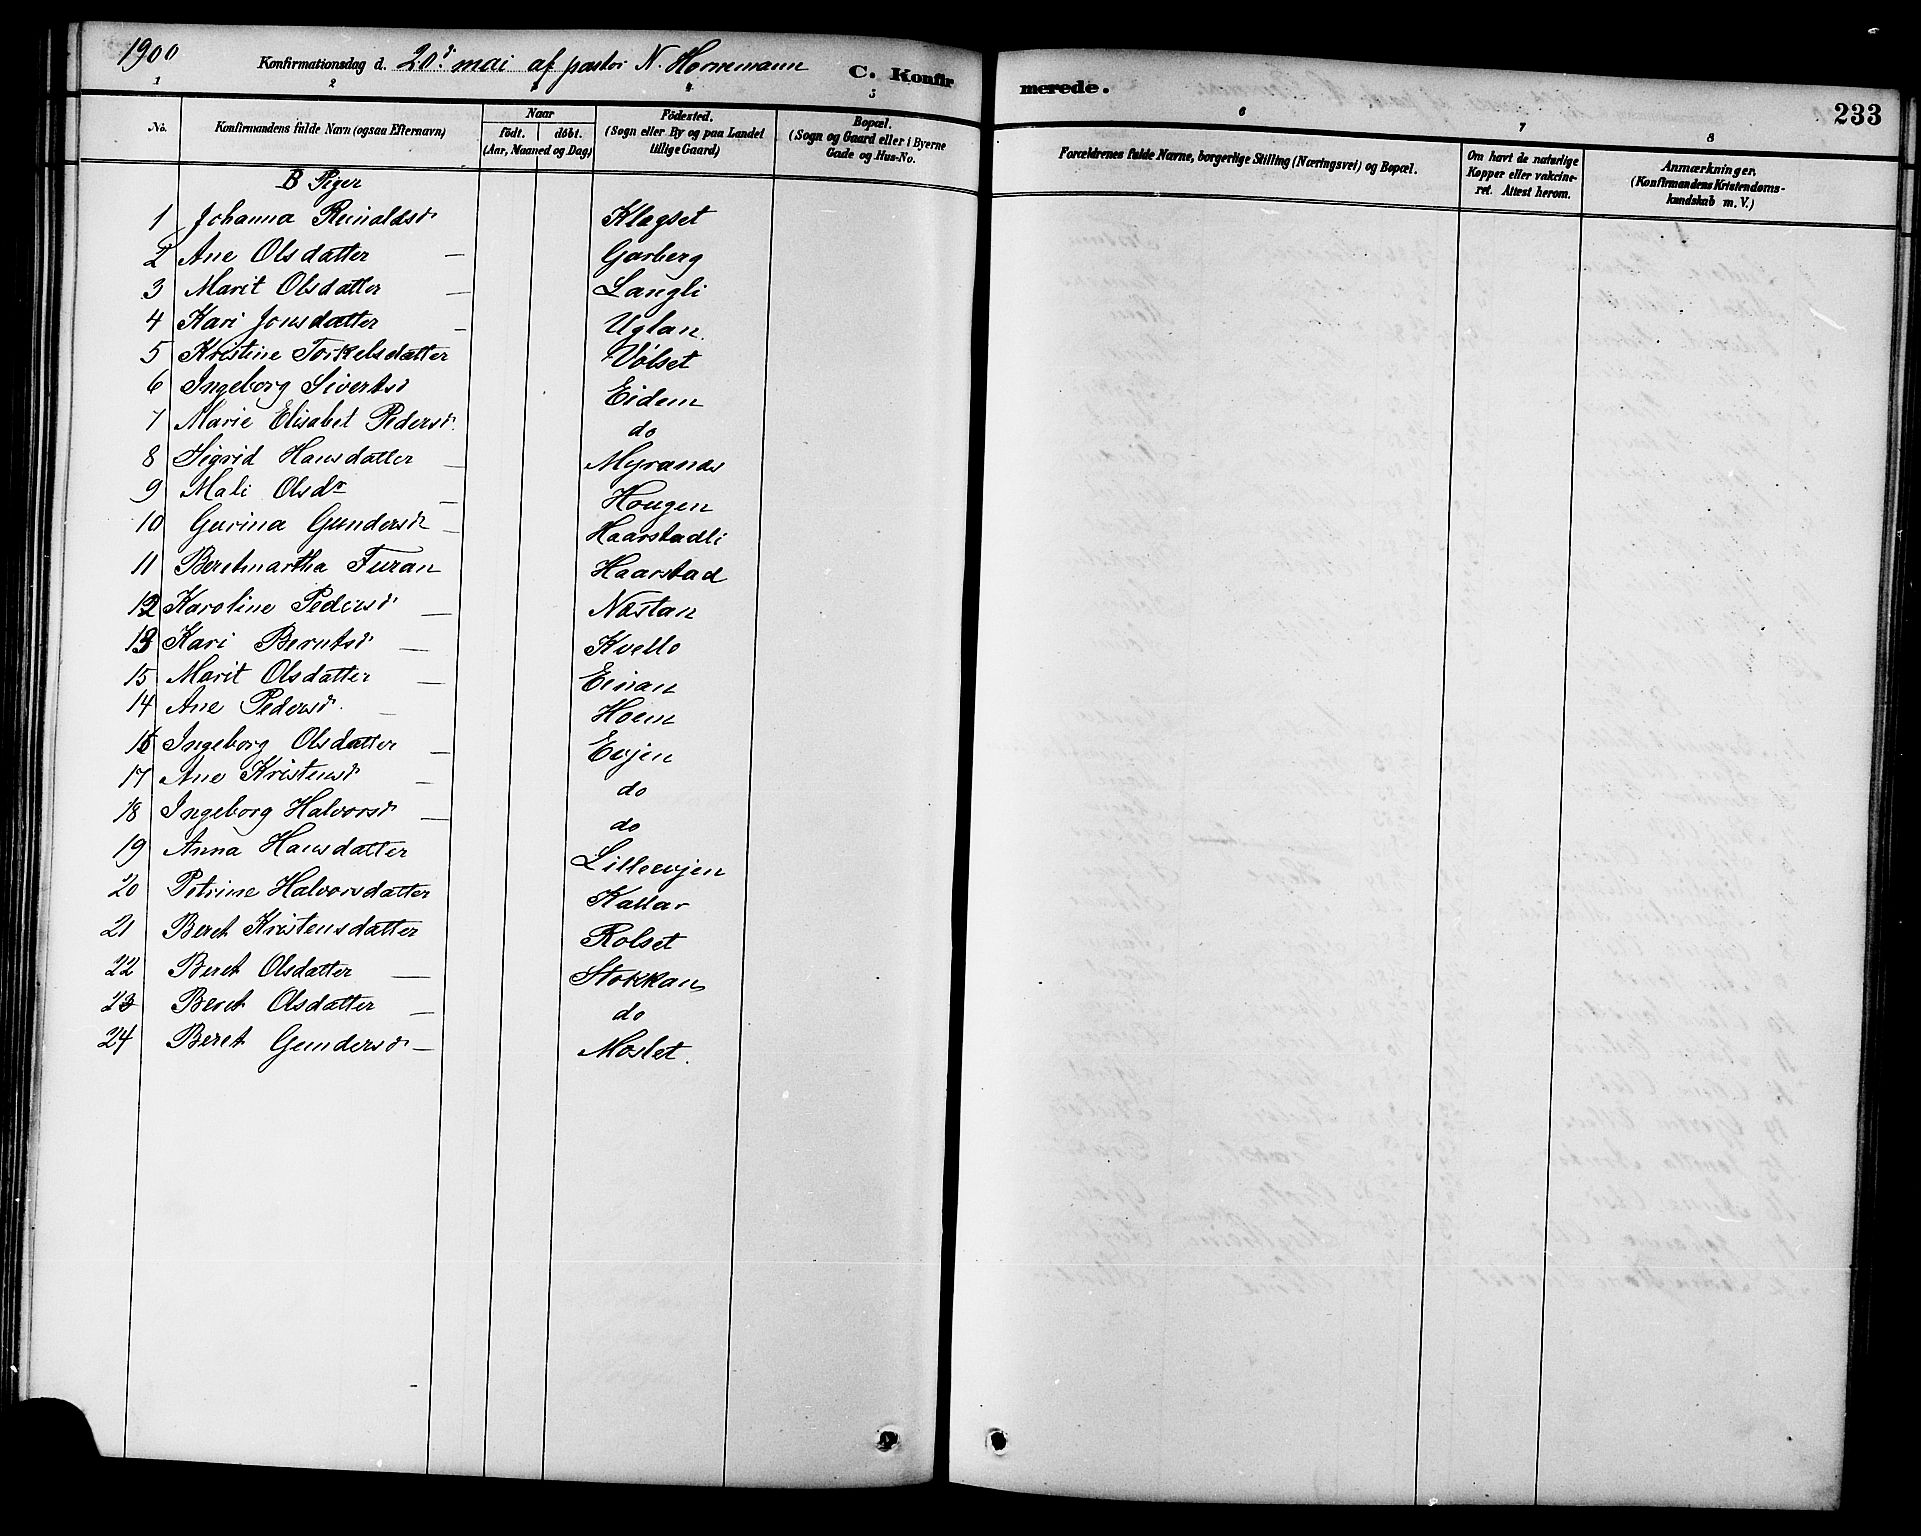 1900 Konfirmationsdag d. 20d mai af pastor N. Hornemann C. Konfirmerede. 233
1 2 3 4 5 6 7 8
No.
Konfirmandens fulde Navn (ogsaa Efternavn)
Naar
födt. döbt.
(Aar, Maaned og Dag)
Födested.
(Sogn eller By og paa Landet
tillige Gaard)
Bopæl.
(Sogn og Gaard eller i Byerne
Gade og Hus-No.
Forældrenes fulde Navne, borgerlige Stilling (Næringsvei) og Bopæl.
Om havt de naturlige
Kopper eller vakcine-
ret. Attest herom.
Anmærkninger.
(Konfirmandens Kristendoms-
kundskab m. V.)
B Piger
1 Johanna Reinaldsd Klegset
2 Ane Olsdatter — Garberg
3 Marit Olsdatter — Langli
4 Kari Jonsdatter — Uglan
5 Kristine Torkelsdatter Vølset
6 Ingeborg Sivertsd Eidem
7 Marie Elisabet Pedersd do
8 Sigrid Hansdatter — Myrands
9 Mali Olsdr — Hougen
10 Gurina Gundersd — Haarstadli
11 Beretmartha Furan Haarstad
12 Karoline Pedersd — Næstan
13 Kari Berntsd — Kvello
15 Marit Olsdatter — Einan
14 Ane Pedersd — Hoem
16 Ingeborg Olsdatter — Evjen
17 Ane Kristensd — do
18 Ingeborg Halvorsd — do
19 Anna Hansdatter Lilleevjen
20 Petrine Halvorsdatter Kallar
21 Beret Kristensdatter Rolset
22 Beret Olsdatter — Stokkan
23 Beret Olsdatter — do
24 Beret Gundersd — Moslet.